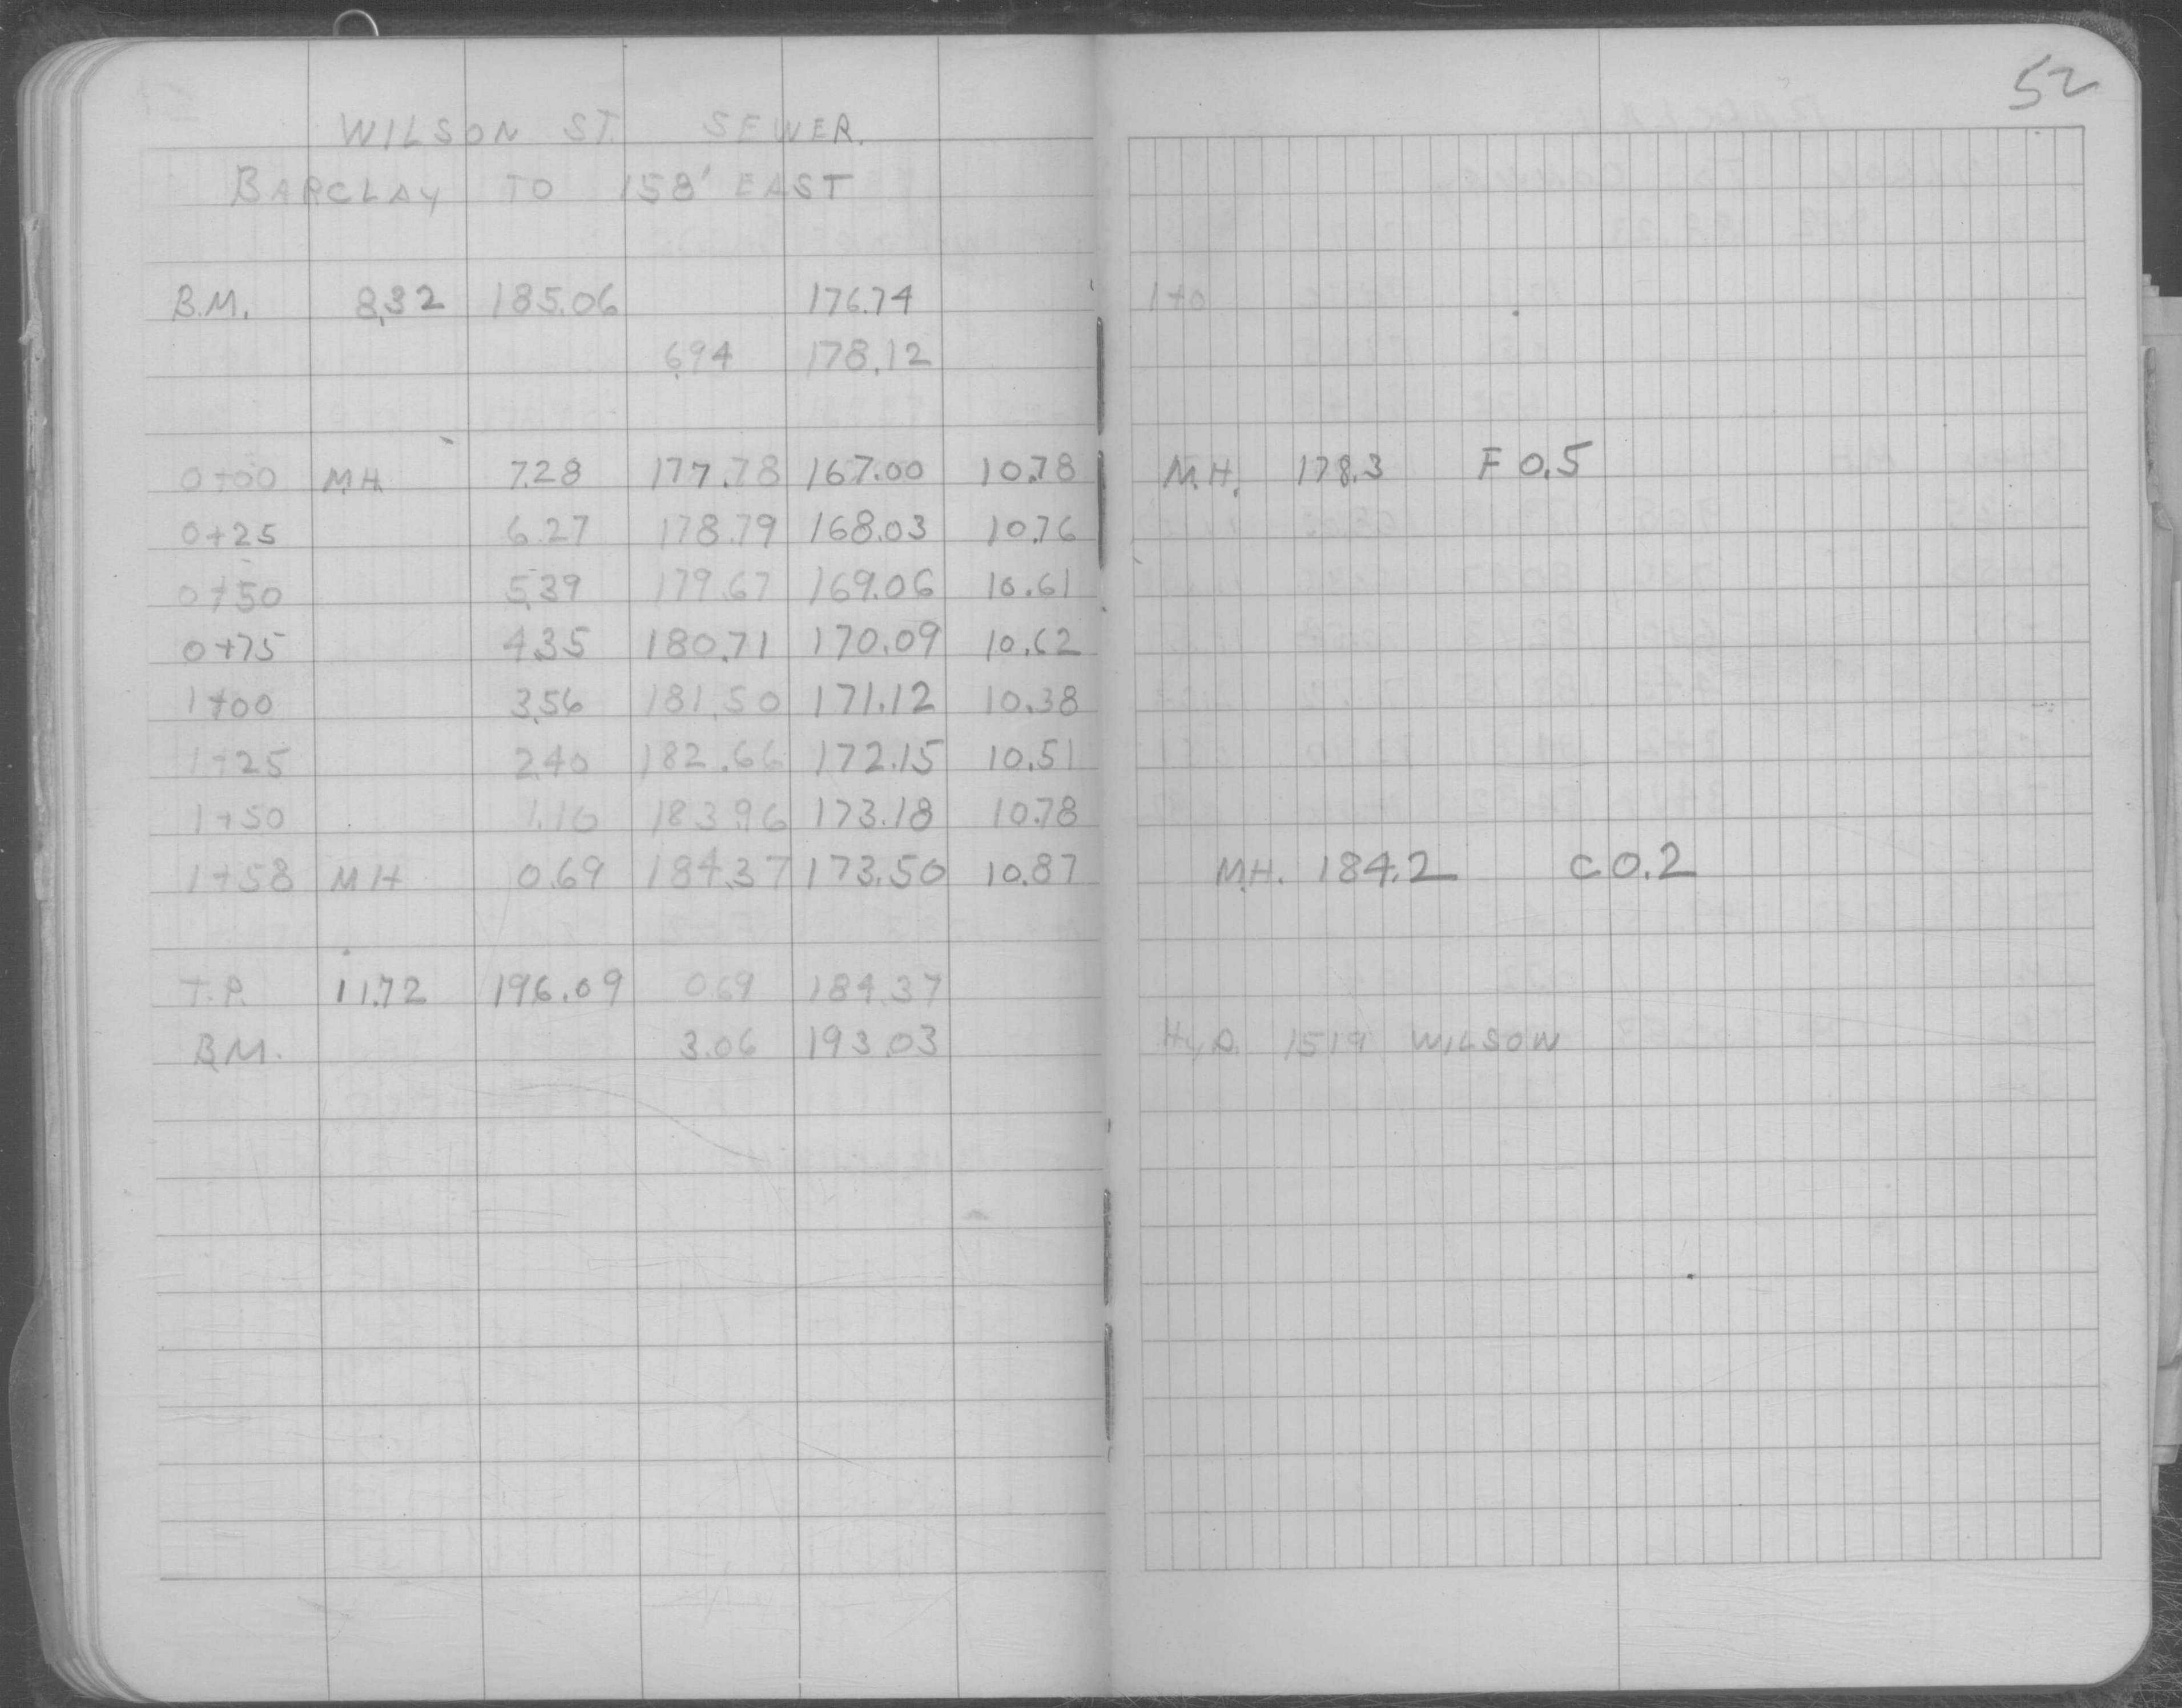 52
WILSON ST. SEWER.
BARCLAY TO 158' EAST
B.M. 8.32 185.06 176.74
6.94 178.12
0+00 M.H. 7.28 177.78 167.00 10.78 M.H. 178.3 F 0.5
0+25 6.27 178.79 168.03 10.76
0+50 5.39 179.67 169.06 10.61
0+75 4.35 180.71 170.09 10.62
1+00 3.56 181.50 171.12 10.38
1+25 2.40 182.66 172.15 10.51
1+50 1.10 183.96 173.18 10.78
1+58 MH 0.69 184.37 173.50 10.87 M.H. 184.2 C 0.2
T.P. 11.72 196.09 0.69 184.37
B.M. 3.06 193.03 HyD. 1519 WILSON